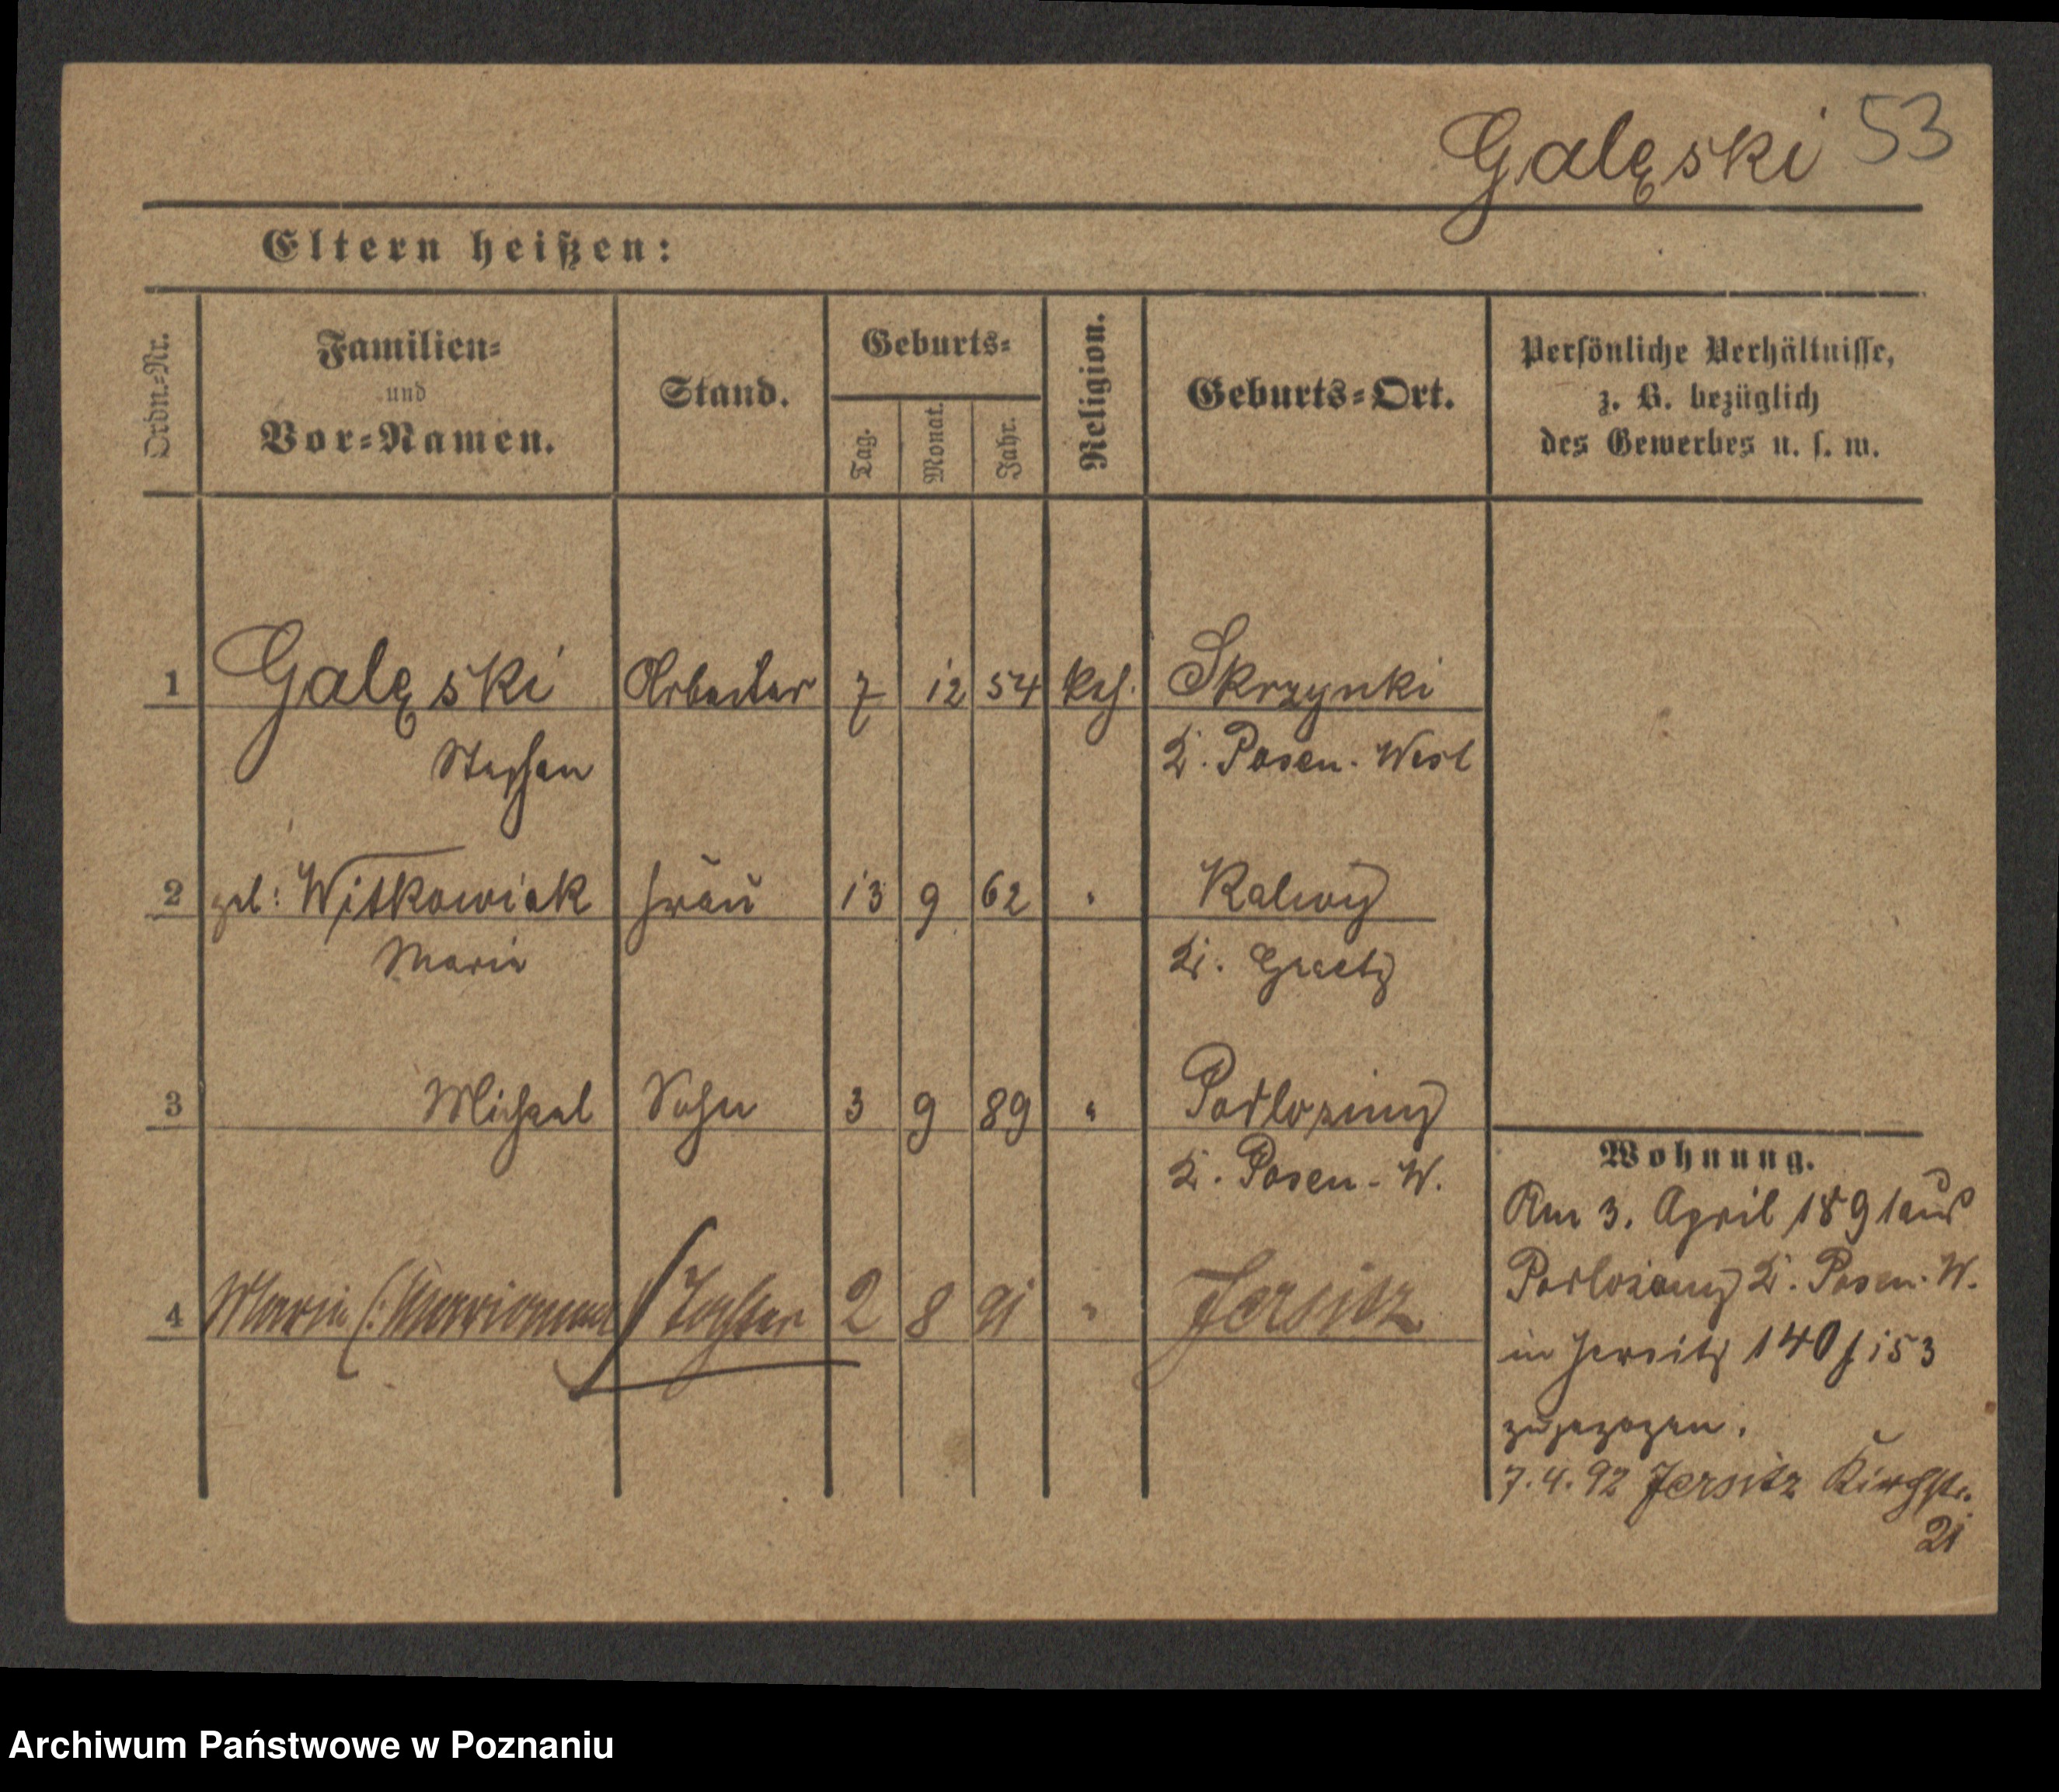 Galęski 53
Eltern heißen:
Ordn.-Nr.
Familien-
und
Vor-Namen.
Stand.
Geburts-
Tag.
Monat.
Jahr.
Religion.
Geburts-Ort.
Persönliche Verhältnisse,
z. B. bezüglich
des Gewerbes u. s. w.
1 Galęski Arbeiter 7 12 54 kath. Skrzynki
Stephan K. Posen-West
2 geb: Witkowiak Frau 13 9 62 " Kalwy
Marie K. Graetz
3 Michael Sohn 3 9 89 " Podloziny
K. Posen-W.
4 Marie (: Marrianna Tochter 2 8 91 " Jersitz
Wohnung.
Am 3. April 1891 aus
K. Posen-W.
in Jersitz 140 153
zugezogen.
7.4.92 Jersitz Kirchstr.
21
Archiwum Państwowe w Poznaniu